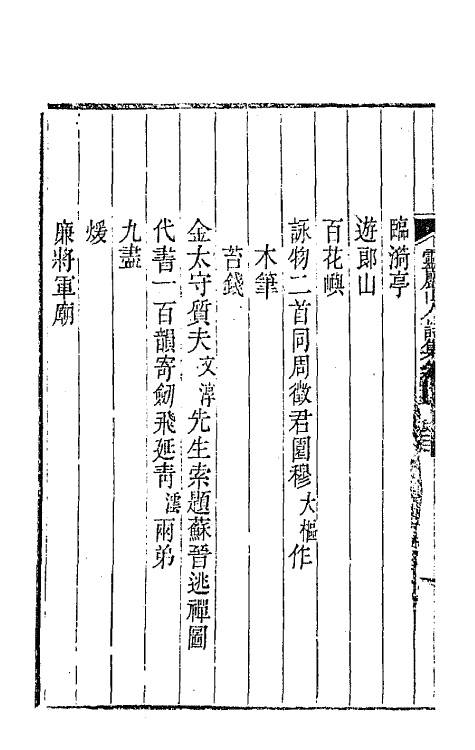 臨漪亭
遊郎山
百花嶼
詠物二首同周徵君圍穆大樞作
木筆
苔錢
金太守質夫文淳先生索題蘇晉逃禪圖
代書一百韻寄劒飛延青澐兩弟
九盡
煖
廉將軍廟